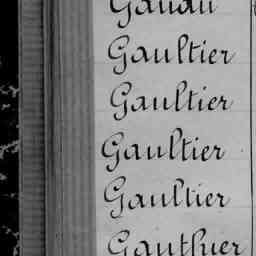 Gaultier
Gaultier
Gaultier
Gaultier
Gauthier